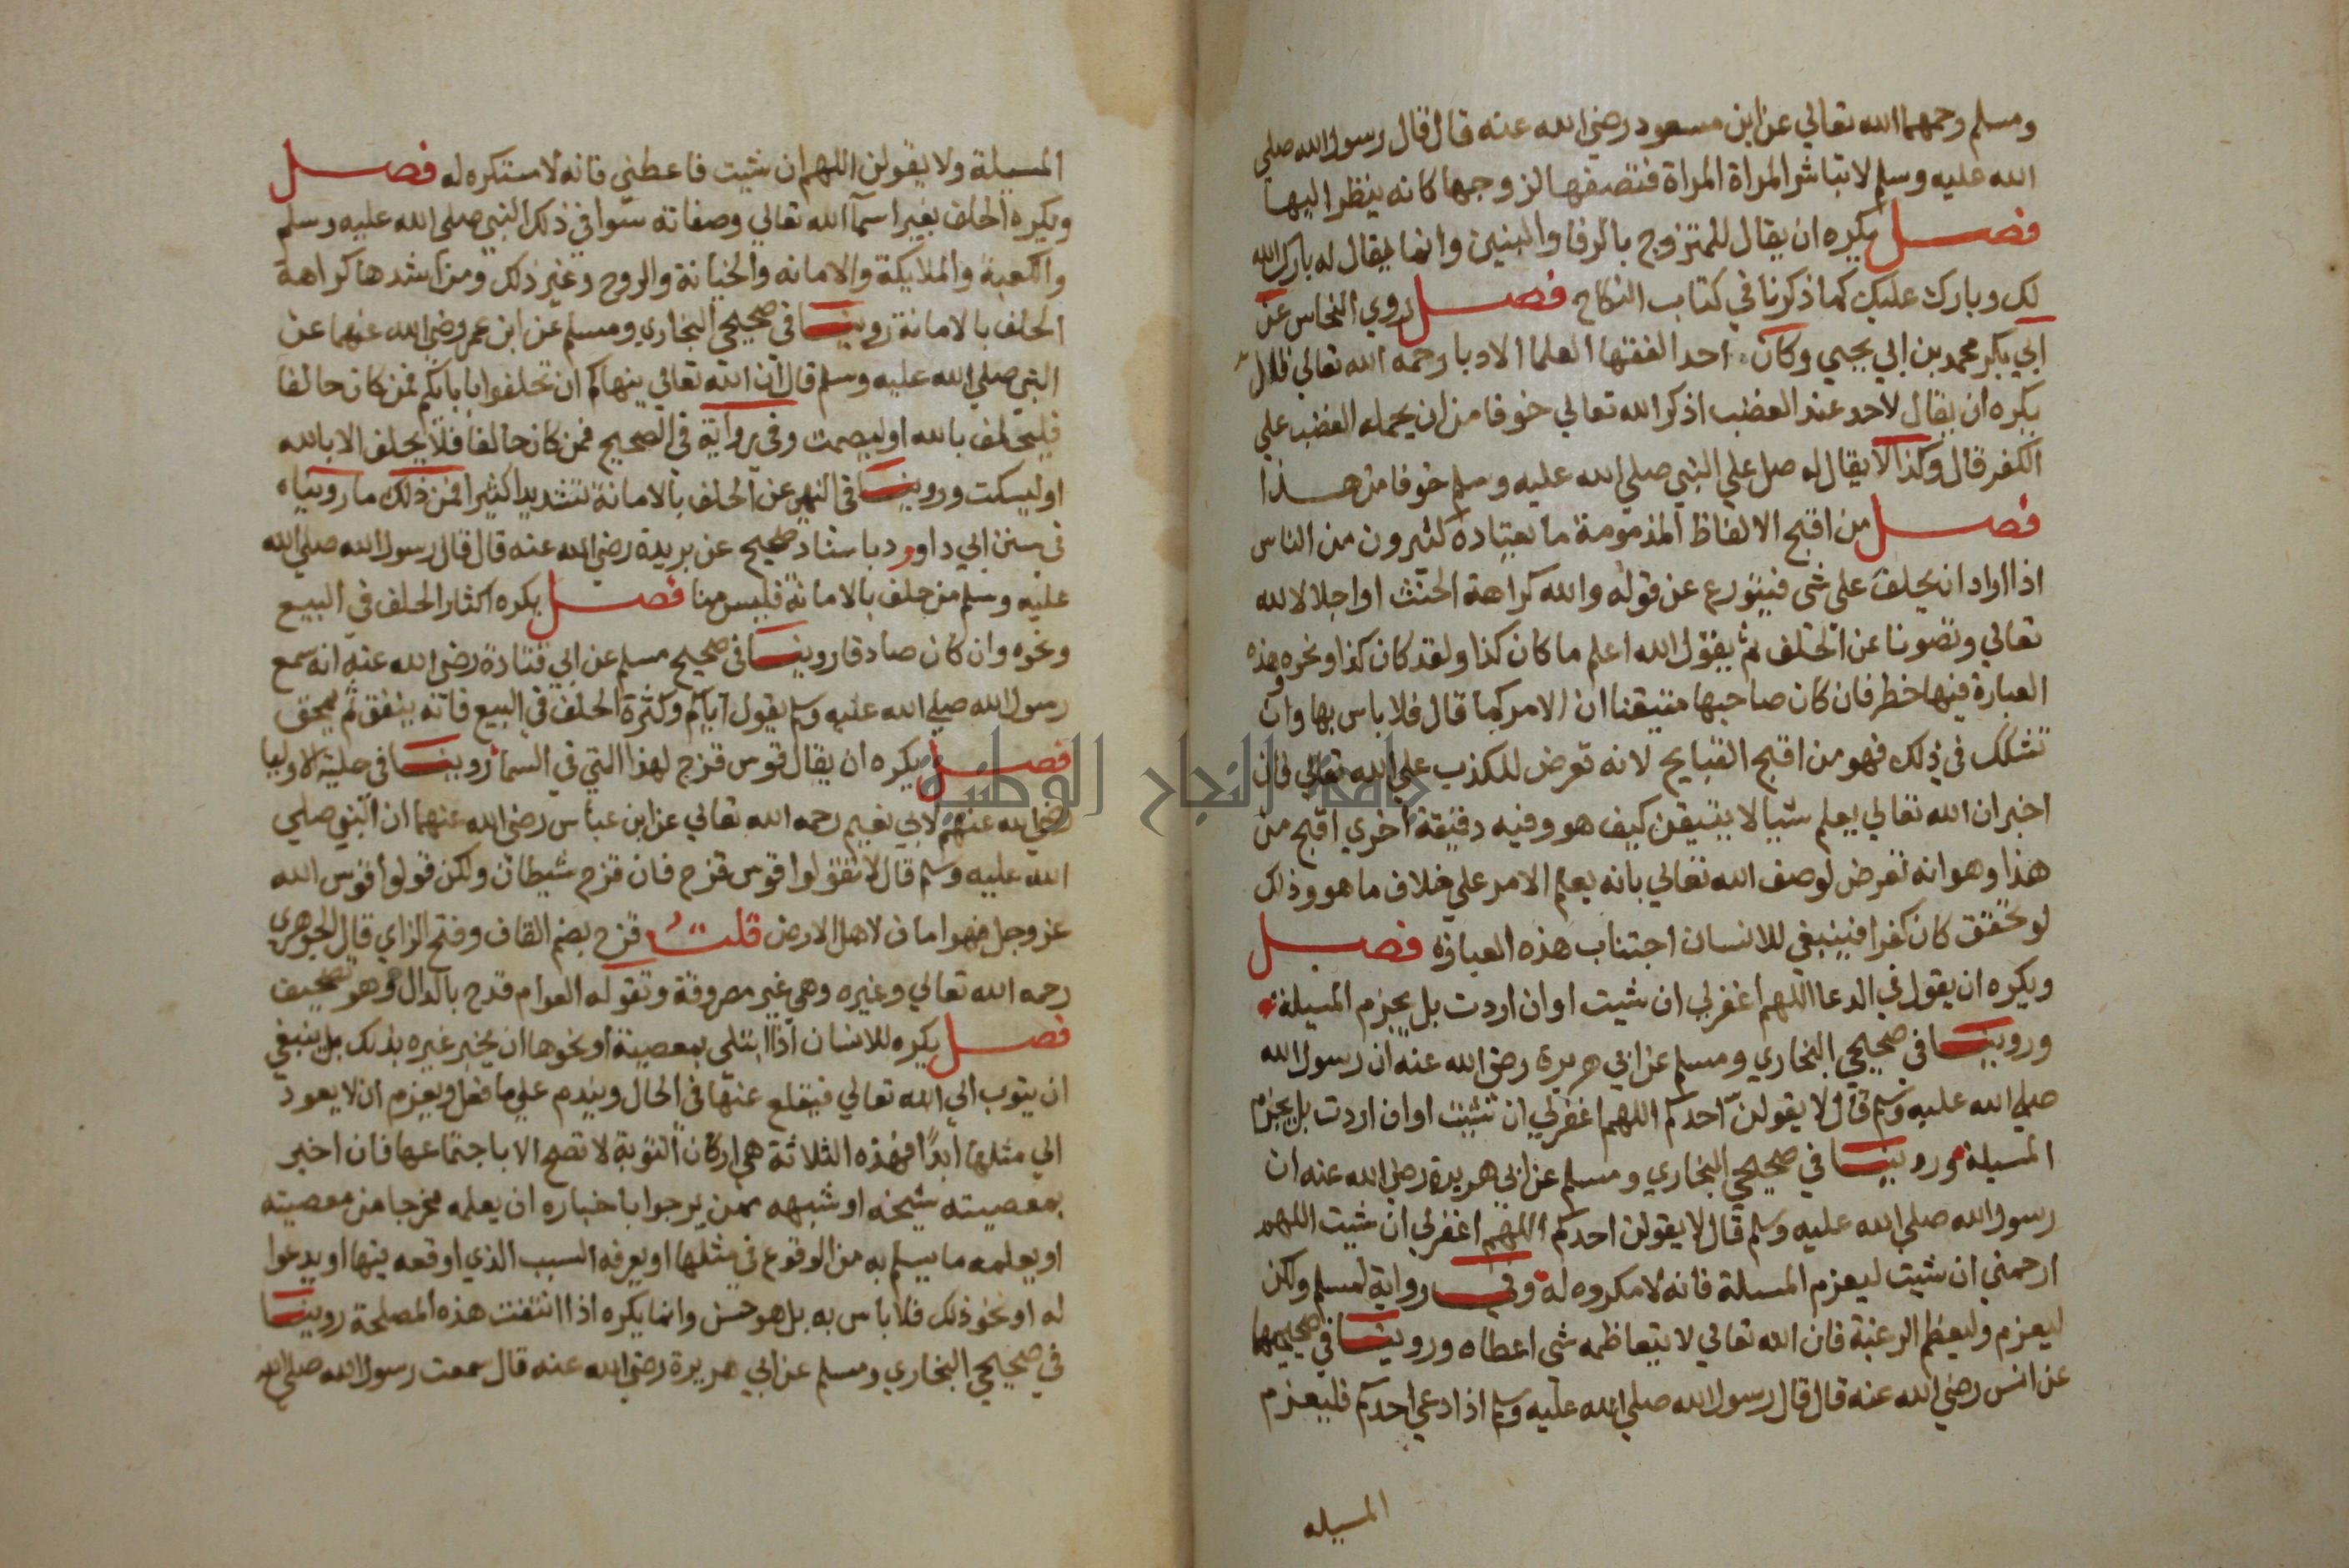 ومسلم رحمهما الله تعالي عن ابن مسعود رضي الله عنه قال قال رسول الله صلي
الله عليه وسلم لا تباشر المراة المراة فتصفها لزوجها كانه ينظر اليها
فصل يكره ان يقال للمتزوج بالرفا والبنين وانما يقال له بارك الله
لك وبارك عليك كما ذكرنا في كتاب النكاح فصل روي النحاس عن
ابي بكر محمد بن ابي يحيي وكان احد الفقها العلما الادبا رحمه الله تعالي قال
يكره ان يقال لاحد عند الغضب اذكر الله تعالي خوفا من ان يحمله الغضب علي
الكفر قال وكذا لا يقال له صل علي النبي صلي الله عليه وسلم خوفا من هذا
فصل من اقبح الالفاظ المذمومة ما يعتاده كثيرون من الناس
اذا اراد ان يحلف علي شي فيتورع عن قوله والله كراهة الحنث او اجلالا لله
تعالي وتصونا عن الحلف ثم يقول الله اعلم ما كان كذا ولقد كان كذا ونحوه وهذه
العبارة فيها خطر فان كان صاحبها متيقنا ان الامر كما قال فلا باس بها وان
تشكك في ذلك فهو من اقبح القبايح لانه تعرض للكذب علي الله تعالي فان
اخبر ان الله تعالي يعلم شيا لا يتيقن كيف هو وفيه دقيقة اخري اقبح من
هذا وهو انه تعرض لوصف الله تعالي بانه يعلم الامر علي خلاف ما هو وذلك
لو تحقق كان كفرا فينبغي للانسان اجتناب هذه العبارة فصل
ويكره ان يقول في الدعا اللهم اغفر لي ان شيت او ان اردت بل يجزم المسيلة
وروينا في صحيحي البخاري ومسلم عن ابي هريرة رضي الله عنه ان رسول الله
صلي الله عليه وسلم قال لا يقولن احدكم اللهم اغفر لي ان شيت او ان اردت بل يجزم
المسيلة وروينا في صحيحي البخاري ومسلم عن ابي هريرة رضي الله عنه ان
رسول الله صلي الله عليه وسلم قال لا يقولن احدكم اللهم اغفر لي ان شيت اللهم
ارحمني ان شيت ليعزم المسلة فانه لا مكروه له وفي رواية لمسلم ولكن
ليعزم وليعظم الرغبة فان الله تعالي لا يتعاظمه شي اعطاه وروينا في صحيحيهما
عن انس رضي الله عنه قال قال رسول الله صلي الله عليه وسلم اذا دعي احدكم فليعزم
المسيله
المسيلة ولا يقولن اللهم ان شيت فاعطني فانه لا مستكره له فصل
ويكره الحلف بغير اسما الله تعالي وصفاته سوا في ذلك النبي صلي الله عليه وسلم
والكعبة والملايكة والامانه والحيانة والروح وغير ذلك ومن اشدها كراهة
الحلف بالامانة روينا في صحيحي البخاري ومسلم عن ابن عمر رضي الله عنهما عن
النبي صلي الله عليه وسلم قال ان الله تعالي ينهاكم ان تحلفوا بابايكم فمن كان حالفا
فليحلف بالله او ليصمت وفي رواية في الصحيح فمن كان حالفا فلا يحلف الا بالله
او ليسكت وروينا في النهي عن الحلف بالامانة تشديدا كثيرا فمن ذلك ما روينا
في سنن ابي داوود باسناد صحيح عن بريدة رضي الله عنه قال قال رسول الله صلي الله
عليه وسلم من حلف بالامانة فليس منا فصل يكره اكثار الحلف في البيع
ونحوه وان كان صادقا روينا في صحيح مسلم عن ابي قتادة رضي الله عنه انه سمع
رسول الله صلي الله عليه وسلم يقول اياكم وكثرة الحلف في البيع فانه ينفق ثم يمحق
فصل يكره ان يقال قوس قزح لهذا التي في السما روينا في حلية الاوليا
رضي الله عنهم لابي نعيم رحمه الله تعالي عن ابن عباس رضي الله عنهما ان النبي صلي
الله عليه وسلم قال لا تقولوا قوس قزح فان قزح شيطان ولكن قولوا قوس الله
عز وجل فهو امان لاهل الارض قلت قزح بضم القاف وفتح الزاي قال الجوهري
رحمه الله تعالي وغيره وهي غير مصروفة وتقوله العوام قدح بالدال وهو تصحيف
فصل يكره للانسان اذا ابتلي بمعصية او نحوها ان يخبر غيره بذلك بل ينبغي
ان يتوب الي الله تعالي فيقلع عنها في الحال ويندم علي ما فعل ويعزم ان لا يعود
الي مثلها ابدا فهذه الثلاثة هي اركان التوبة لا تصح الا باجتماعها فان اخبر
بمعصيته شيخه او شبهه ممن يرجوا باخباره ان يعلمه مخرجا من معصيته
او يعلمه ما يسلم به من الوقوع في مثلها او يعرفه السبب الذي اوقعه فيها او يدعوا
له او نحو ذلك فلا باس به بل هو حسن وانما يكره اذا انتفت هذه المصلحة روينا
في صحيحي البخاري ومسلم عن ابي هريرة رضي الله عنه قال سمعت رسول الله صلي الله
جامعة النجاح الوطنية